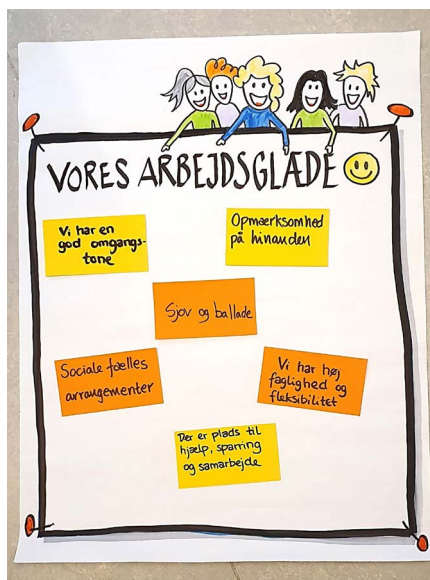 VORES ARBEJDSGLÆDE
Vi har en
god omgangs-
tone
Opmærksomhed
på hinanden
Sjov og ballade
Sociale fælles
arrangementer
Vi har høj
faglighed og
fleksibilitet
Der er plads til
hjælp, sparring
og samarbejde